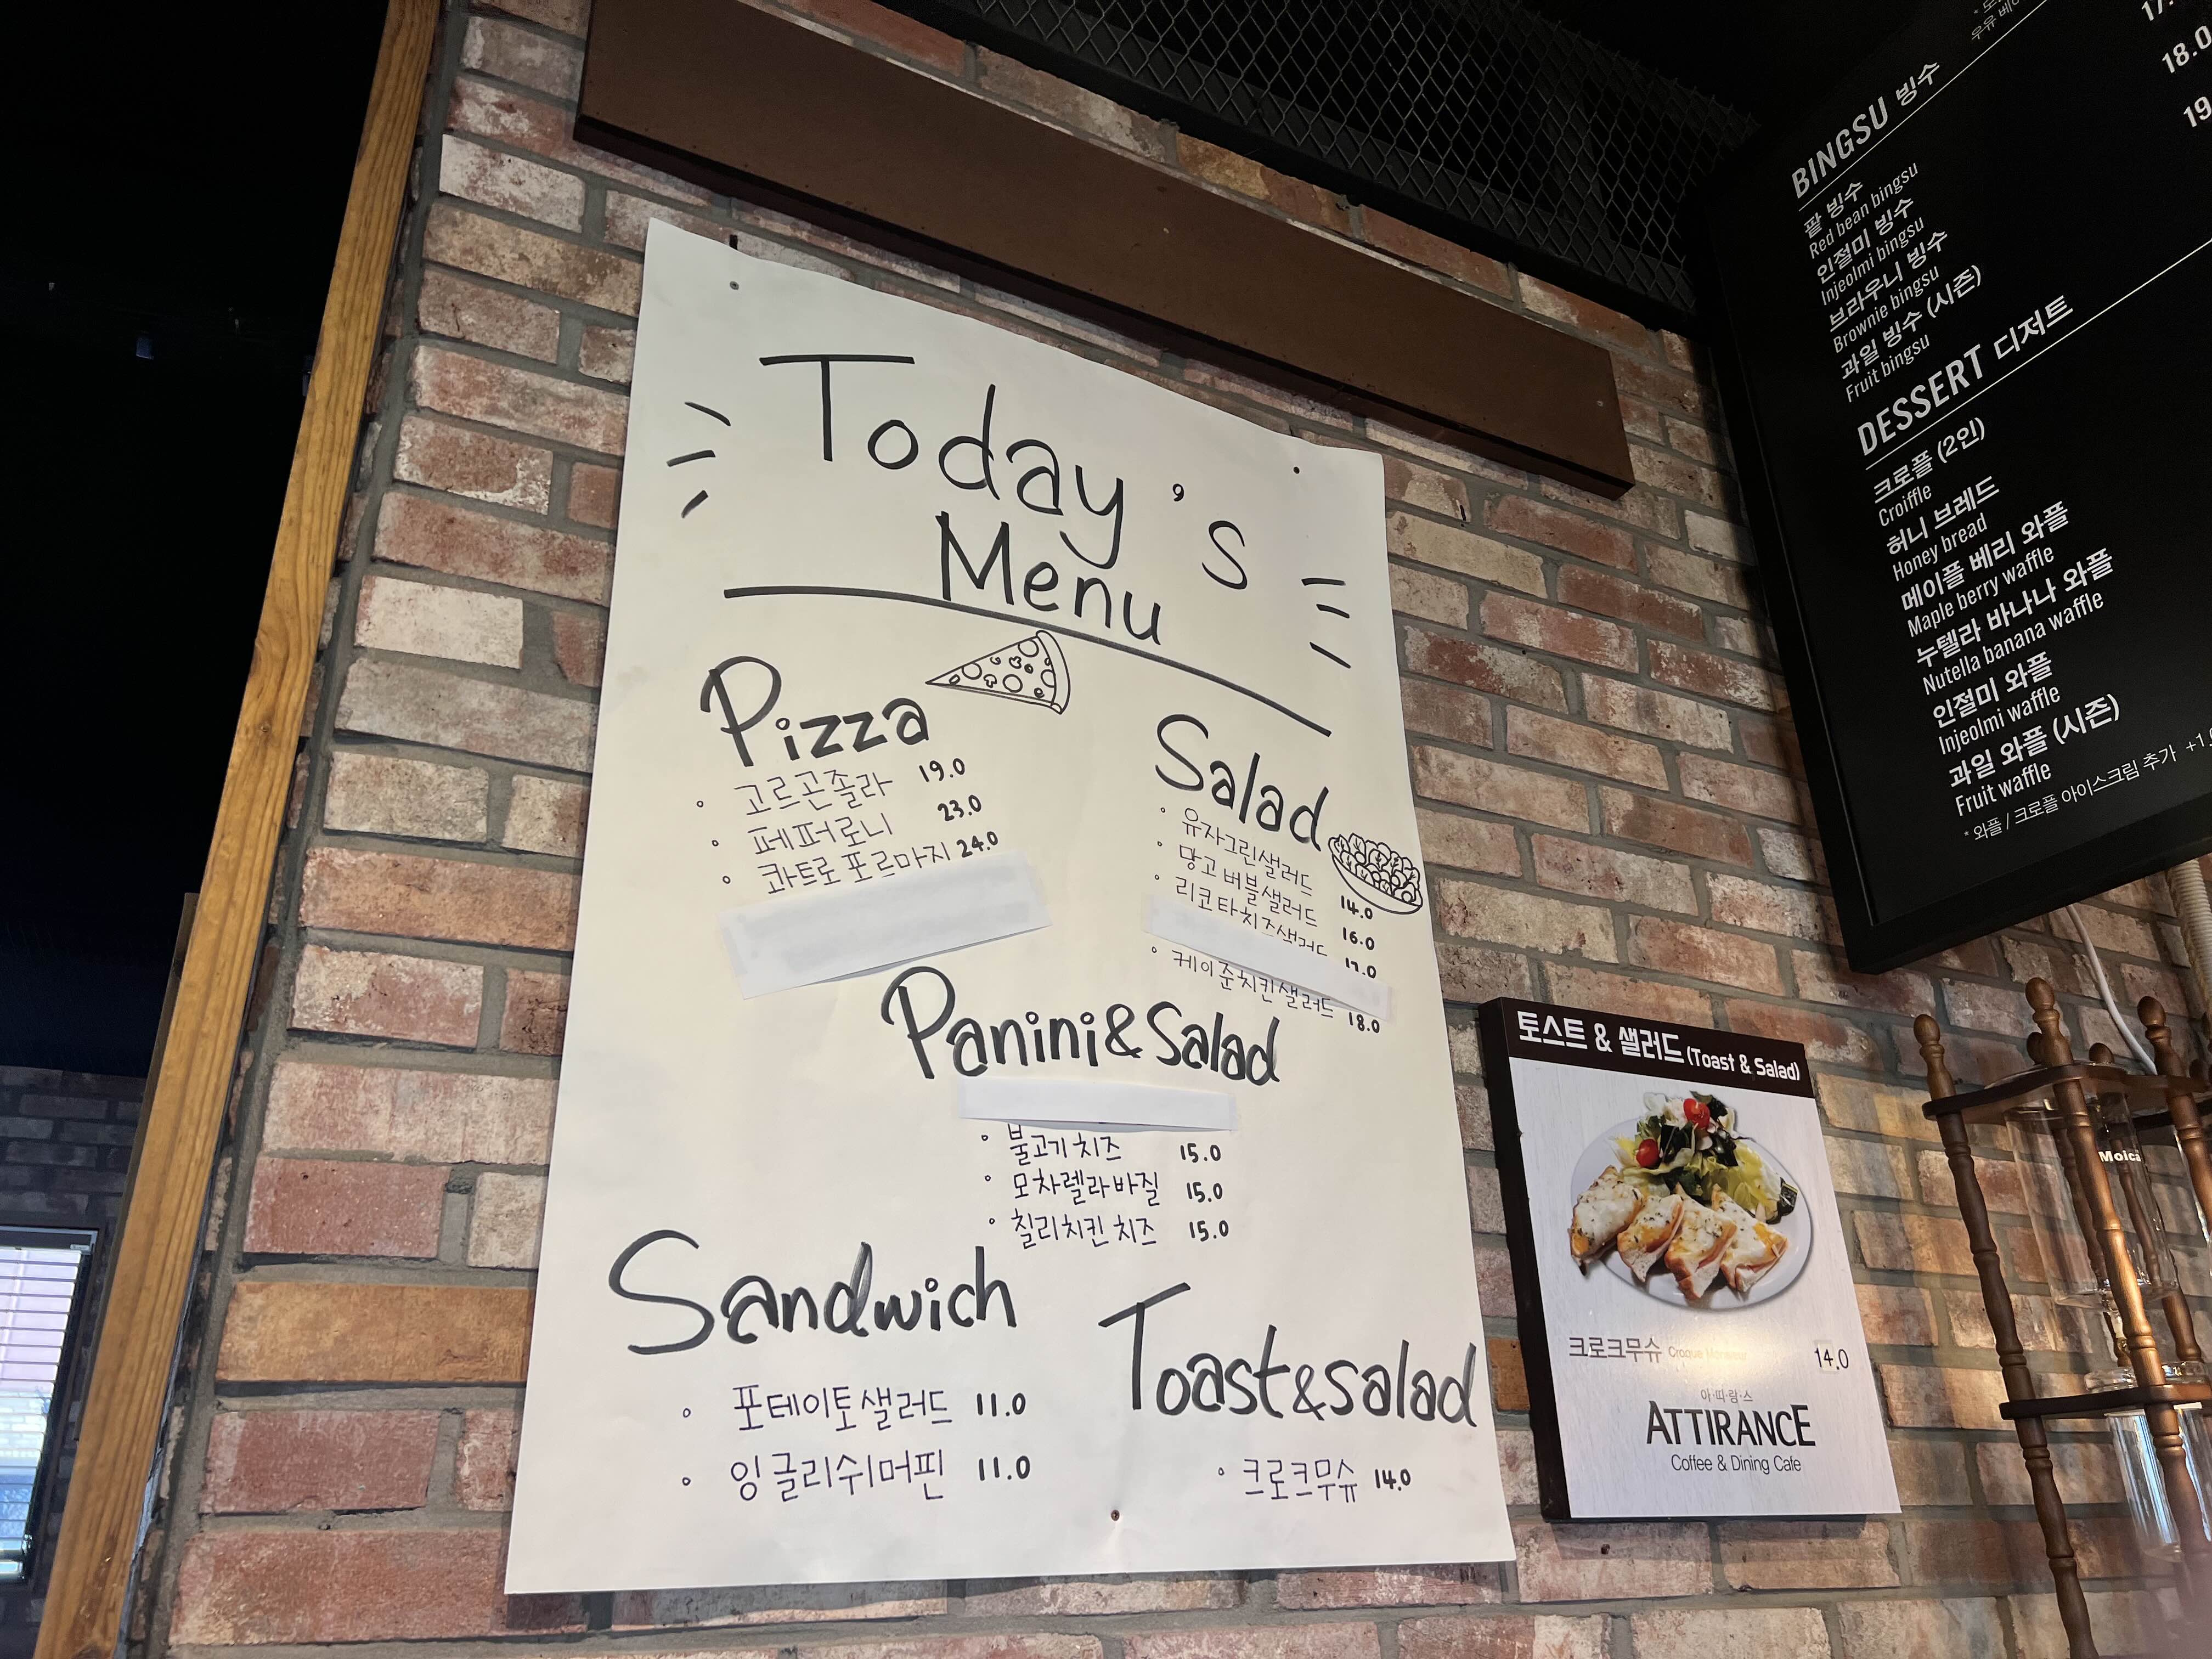 Today's
Menu
Pizza
고르곤졸라 19.0
페퍼로니 23.0
콰트로 포르마지 24.0
Salad
유자그린샐러드 14.0
망고 버블샐러드 16.0
리코타치즈샐러드 17.0
케이준치킨샐러드 18.0
Panini&Salad
불고기치즈 15.0
모차렐라바질 15.0
칠리치킨치즈 15.0
Sandwich
포테이토샐러드 11.0
잉글리쉬머핀 11.0
Toast&salad
크로크무슈 14.0
토스트 & 샐러드 (Toast & Salad)
크로크무슈 Croque Monsieur 14.0
아·띠·랑·스
ATTIRANCE
Coffee & Dining Cafe
18.0
BINGSU 빙수
팥 빙수
Red bean bingsu
인절미 빙수
Injeolmi bingsu
브라우니 빙수
Brownie bingsu
과일 빙수 (시즌)
Fruit bingsu
DESSERT 디저트
크로플 (2인)
Croiffle
허니 브레드
Honey bread
메이플 베리 와플
Maple berry waffle
누텔라 바나나 와플
Nutella banana waffle
인절미 와플
Injeolmi waffle
과일 와플 (시즌)
Fruit waffle
* 와플 / 크로플 아이스크림 추가
Moica